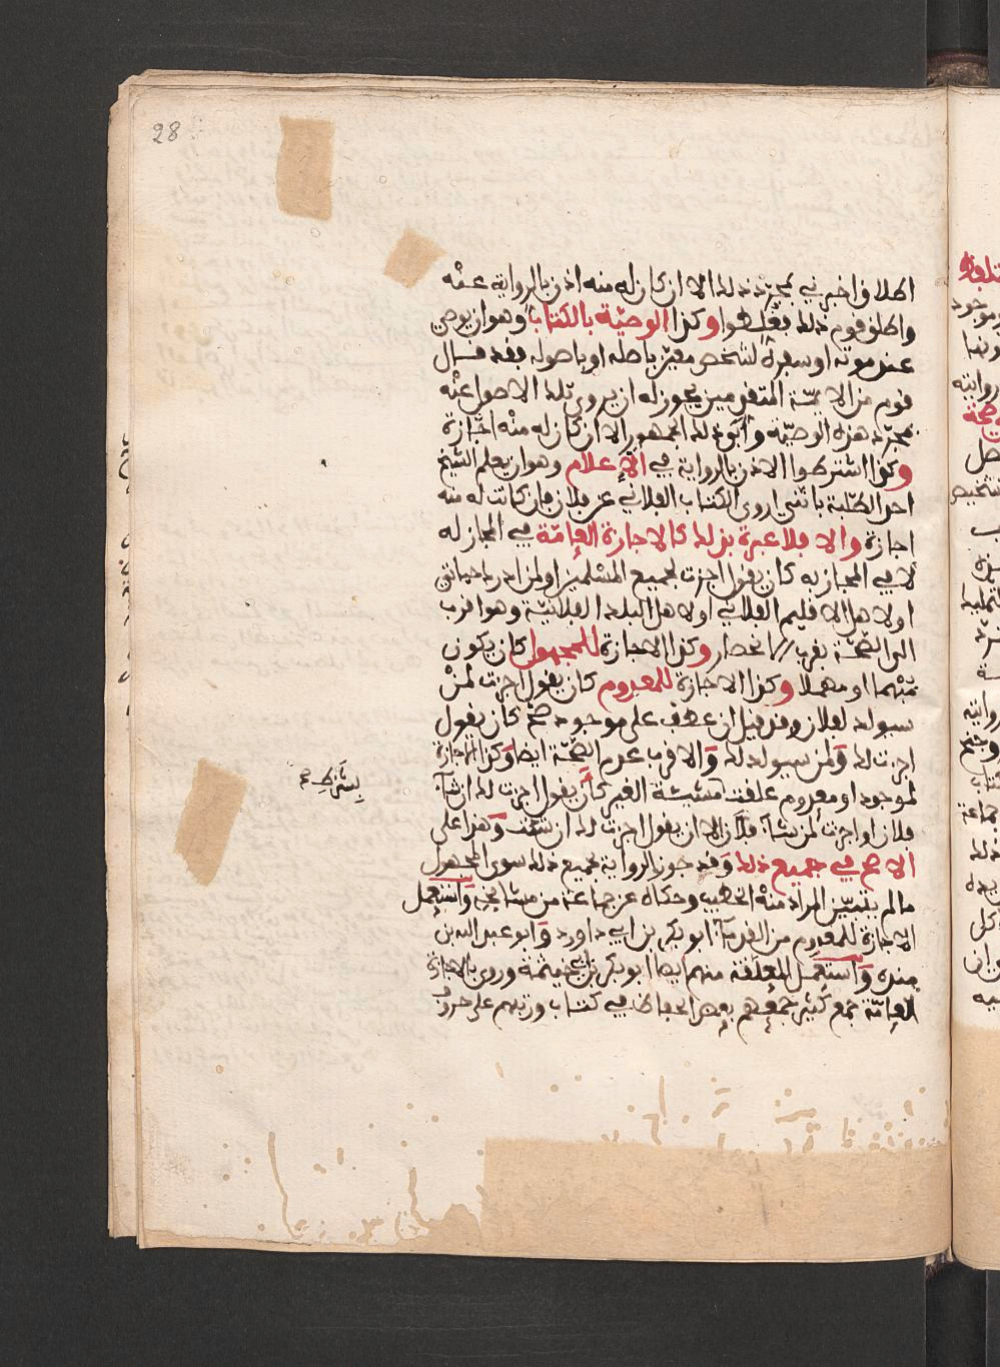 28
اطلاق اخبرني بمجرد ذلك الا ان كان له منه اذن بالرواية عنه
واطلق قوم ذلك فغلطوا وكذا الوصيّة بالكتاب وهو ان يوصي
عند موته او سفره لشخص معيّن باصله او باصوله فقد قال
قوم من الائمّة المتقدمين يجوز له ان يروي تلك الاصول عنه
بمجرّد هذه الوصيّة وأبى ذلك الجمهور الا ان كان له منه اجازة
وكذا اشترطوا الاذن بالرواية في الإعلام وهو ان يعلم الشيخ
احد الطلبة بانني اروي الكتاب الفلاني عن فلان فان كانت له منه
اجازة والا فلا عبرة بذلك كالاجازة العامّة في المجاز له
لا في المجاز به كان يقول اجزت لجميع المسلمين او لمن ادرك حياتي
او لاهل الاقليم الفلاني او لاهل البلدة الفلانيّة وهو اقرب
الى الصّحّة لقرب الانحصار وكذا الاجازة للمجهول كان يكون
مبْهما او مهملا وكذا الاجازة للمعدوم كان يقول اجزت لمنْ
سيولد لفلان وقد قيل ان عطف على موجود صحّ كان يقول
اجزت لك ولمن سيولد لك والاقرب عدم الصّحّة ايضا وكذا الاجازة
لموجود او معدوم علقت بمشيئة الغير كأن يقول اجزت لك ان شاء
فلان او اجزت لمن شاء فلان الا ان يقول اجزت لك ان شئت وهذا على
الاصح في جميع ذلك وقد جوز الرواية بجميع ذلك سوى المجهول
ما لم يتبيّن المراد منه الخطيب وحكاه عن جماعة من مشائخه واستعمل
الاجازة للمعدوم من القدماء ابو بكر بن ابي داود وابو عبد الله بن
منده واستعمل المعلقة منهم ايضا ابو بكر بن ابي خيثمة وروى بالاجازة
العامّة جمع كثير جمعهم بعض الحفاظ في كتاب ورتبهم على حروف
بشرط صح